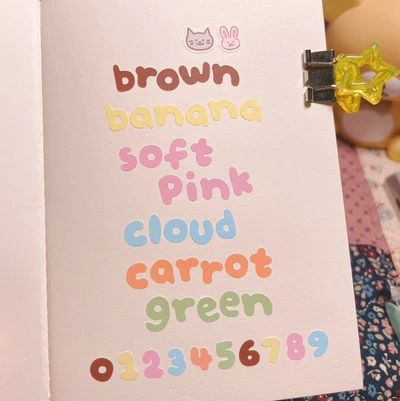 brown
banana
soft
pink
cloud
carrot
green
0123456789